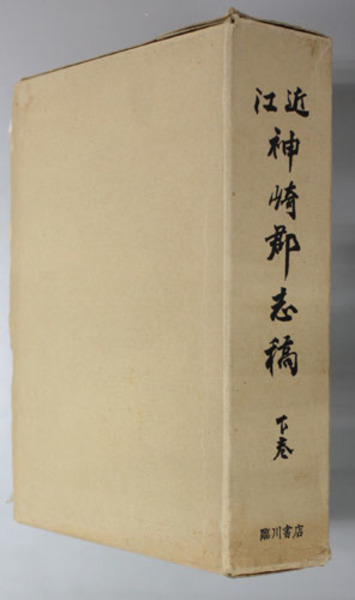 近江
神崎郡志稿
下巻
臨川書店